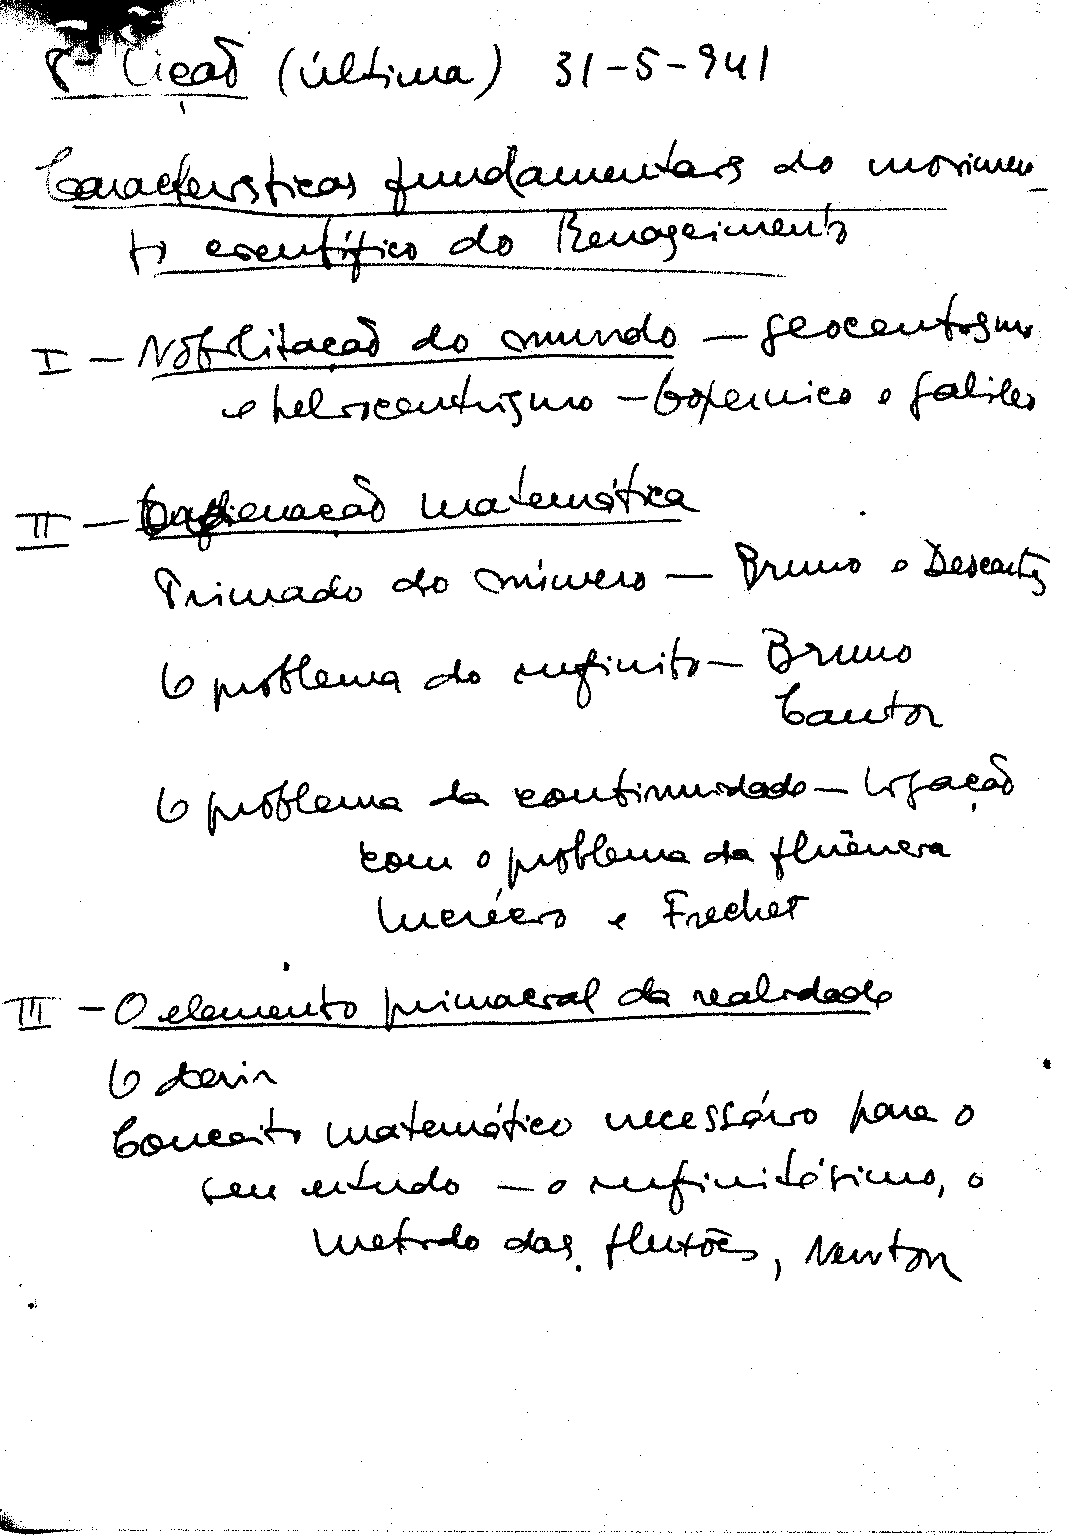 8ª Lição (última) 31-5-941
Características fundamentais do movimen_
to científico do Renascimento
I – Nobilitação do mundo – geocentrismo
e heliocentrismo – Copernico e Galileo
II – Ordenação matemática
Primado do número – Bruno e Descartes
O problema do infinito – Bruno
Cantor
O problema da continuidade – Ligação
com o problema da fluência
Lucrécio e Frechet
III – O elemento primacial da realidade
O devir
Conceito matemático necessário para o
seu estudo – o infinitésimo, o
metodo das fluxões, Newton